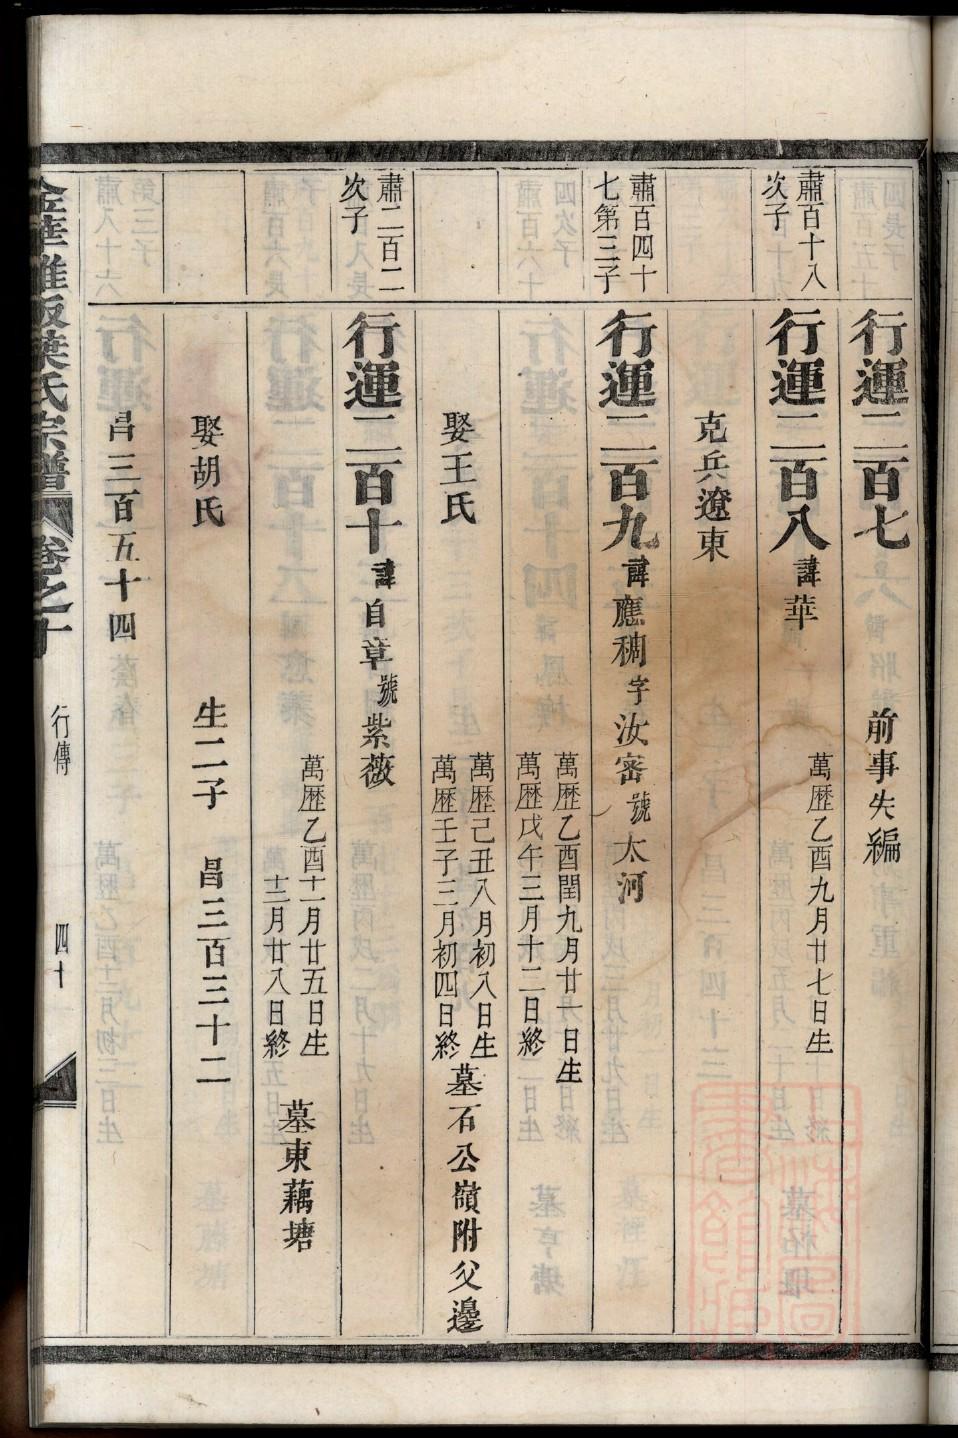 行運二百七
前事失編
肅百十八
次子
行運二百八諱華
萬歷乙酉九月廿七日生
克兵遼東
肅百四十
七第三子
行運二百九諱應稠字汝密號太河
萬歷乙酉閏九月廿一日生
萬歷戊午三月十二日終
娶王氏
萬歷己丑八月初八日生
萬歷壬子三月初四日終
墓石公嶺附父邊
肅二百二
次子
行運二百十諱自章號紫薇
萬歷乙酉十一月廿五日生
十二月廿八日終
墓東藕塘
娶胡氏
生二子 昌三百三十二
昌三百五十四
金華雅畈葉氏宗譜 卷之十 行傳 四十